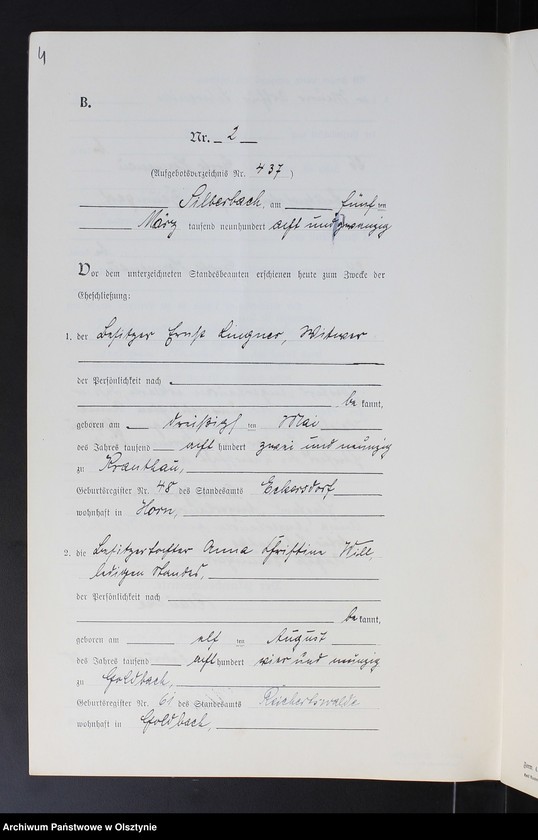 4
B.
Nr. 2
(Aufgebotsverzeichnis Nr. 437)
Silberbach, am fünf ten
März tausend neunhundert acht und zwanzig
Vor dem unterzeichneten Standesbeamten erschienen heute zum Zwecke der
Eheschließung:
1. der Besitzer Ernst Lingner, Witwer
der Persönlichkeit nach
be kannt,
geboren am dreißigs ten Mai
des Jahres tausend acht hundert zwei und neunzig
zu Kranthau,
Geburtsregister Nr. 48 des Standesamts Eckersdorf
wohnhaft in Horn,
2. die Besitzertochter Anna Christine Will,
ledigen Standes,
der Persönlichkeit nach
be kannt,
geboren am elf ten August
des Jahres tausend acht hundert vier und neunzig
zu Goldbach,
Geburtsregister Nr. 61 des Standesamts Rückertswalde
wohnhaft in Goldbach,
Archiwum Państwowe w Olsztynie